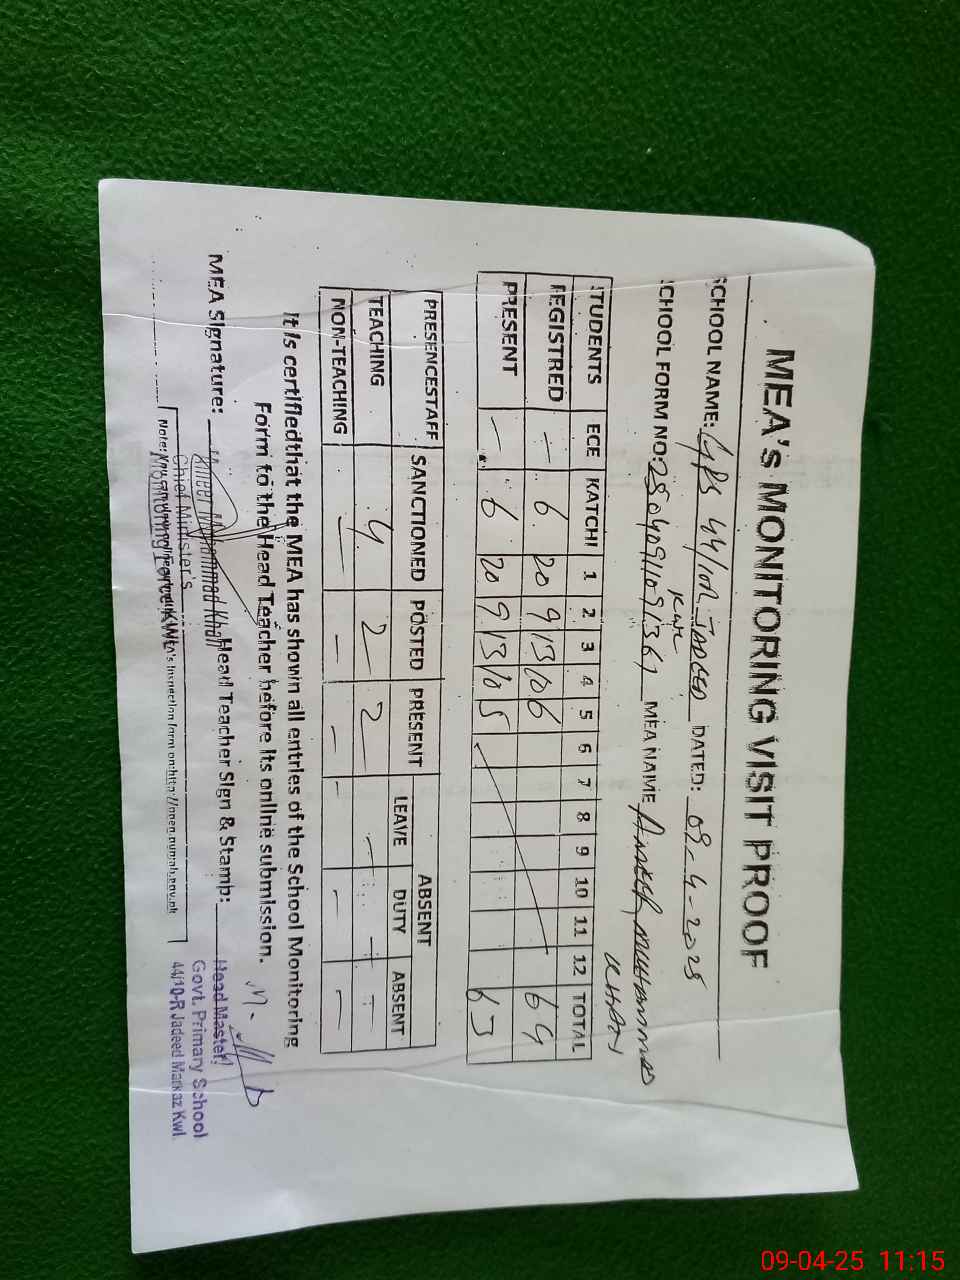 MEA's MONITORING VISIT PROOF
SCHOOL NAME: GPS 44/10R JADEED KWL DATED: 09-4-2025
SCHOOL FORM NO: MEA NAME AMEER MUHAMMAD KHAN
STUDENTS ECE KATCHI 1 2 3 4 5 6 7 8 9 10 11 12 TOTAL
REGISTRED - 6 20 9 13 10 6 64
PRESENT - 6 20 9 13 10 5 63
PRESENCESTAFF SANCTIONED POSTED PRESENT ABSENT
LEAVE DUTY ABSENT
TEACHING 4 2 2 - - -
NON-TEACHING - - - - - -
It is certifiedthat the MEA has shown all entries of the School Monitoring
Form to the Head Teacher before its online submission.
MEA Signature: Head Teacher Sign & Stamp:
Ameer Muhammad Khan
Chief Minister's
Monitoring Force KWL
Head Master
Govt. Primary School
44/10-R Jadeed Markaz Kwl.
09-04-25 11:15